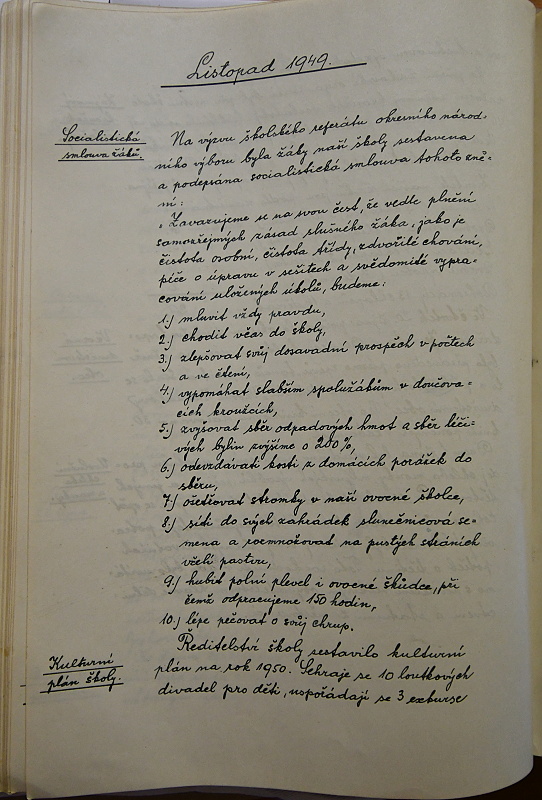 Listopad 1949.
Socialistická
smlouva žáků.
Na výzvu školského referátu okresního národ-
ního výboru byla žáky naší školy sestavena
a podepsána socialistická smlouva tohoto zně-
ní:
„Zavazujeme se na svou čest, že vedle plnění
samozřejmých zásad slušného žáka, jako je
čistota osobní, čistota třídy, zdvořilé chování,
péče o úpravu v sešitech a svědomité vypra-
cování uložených úkolů, budeme:
1.) mluvit vždy pravdu,
2.) chodit včas do školy,
3.) zlepšovat svůj dosavadní prospěch v počtech
a ve čtení,
4.) vypomáhat slabším spolužákům v doučova-
cích kroužcích,
5.) zvyšovat sběr odpadových hmot a sběr léči-
vých bylin zvýšíme o 200%,
6.) odevzdávati kosti z domácích porážek do
sběru,
7.) ošetřovat stromky v naší ovocné školce,
8.) síti do svých zahrádek slunečnicová se-
mena a rozmnožovat na pustých stráních
včelí pastvu,
9.) hubit polní plevel i ovocné škůdce, při
čemž odpracujeme 150 hodin,
10.) lépe pečovat o svůj chrup.
Kulturní
plán školy.
Ředitelství školy sestavilo kulturní
plán na rok 1950. Sehraje se 10 loutkových
divadel pro děti, uspořádají se 3 exkurse